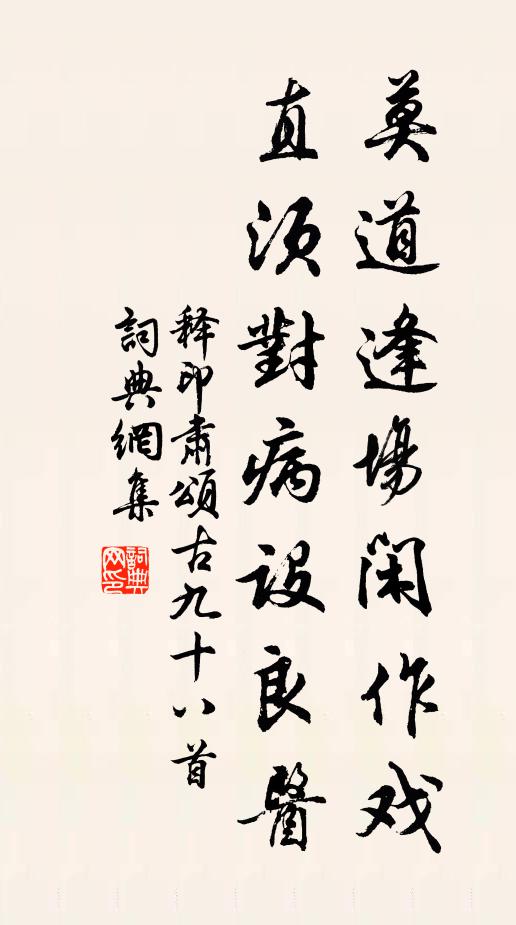 莫道逢場閑作戏
直須對病設良醫
释印肃頌古九十八首
詞典網集
詞典网印